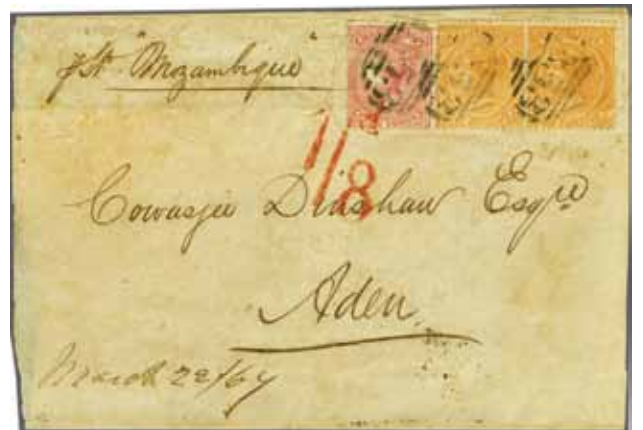 p St "Mozambique"
1/8
Cowasjee Dinshaw Esqre
Aden
March 22/64